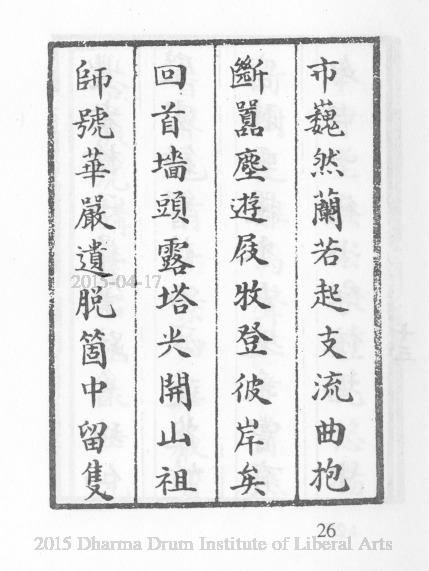 市巍然蘭若起支流曲抱
斷囂塵遊屐牧登彼岸矣
回首墻頭露塔尖開山祖
師號華嚴遺脫箇中留隻
2015-04-17
26
2015 Dharma Drum Institute of Liberal Arts